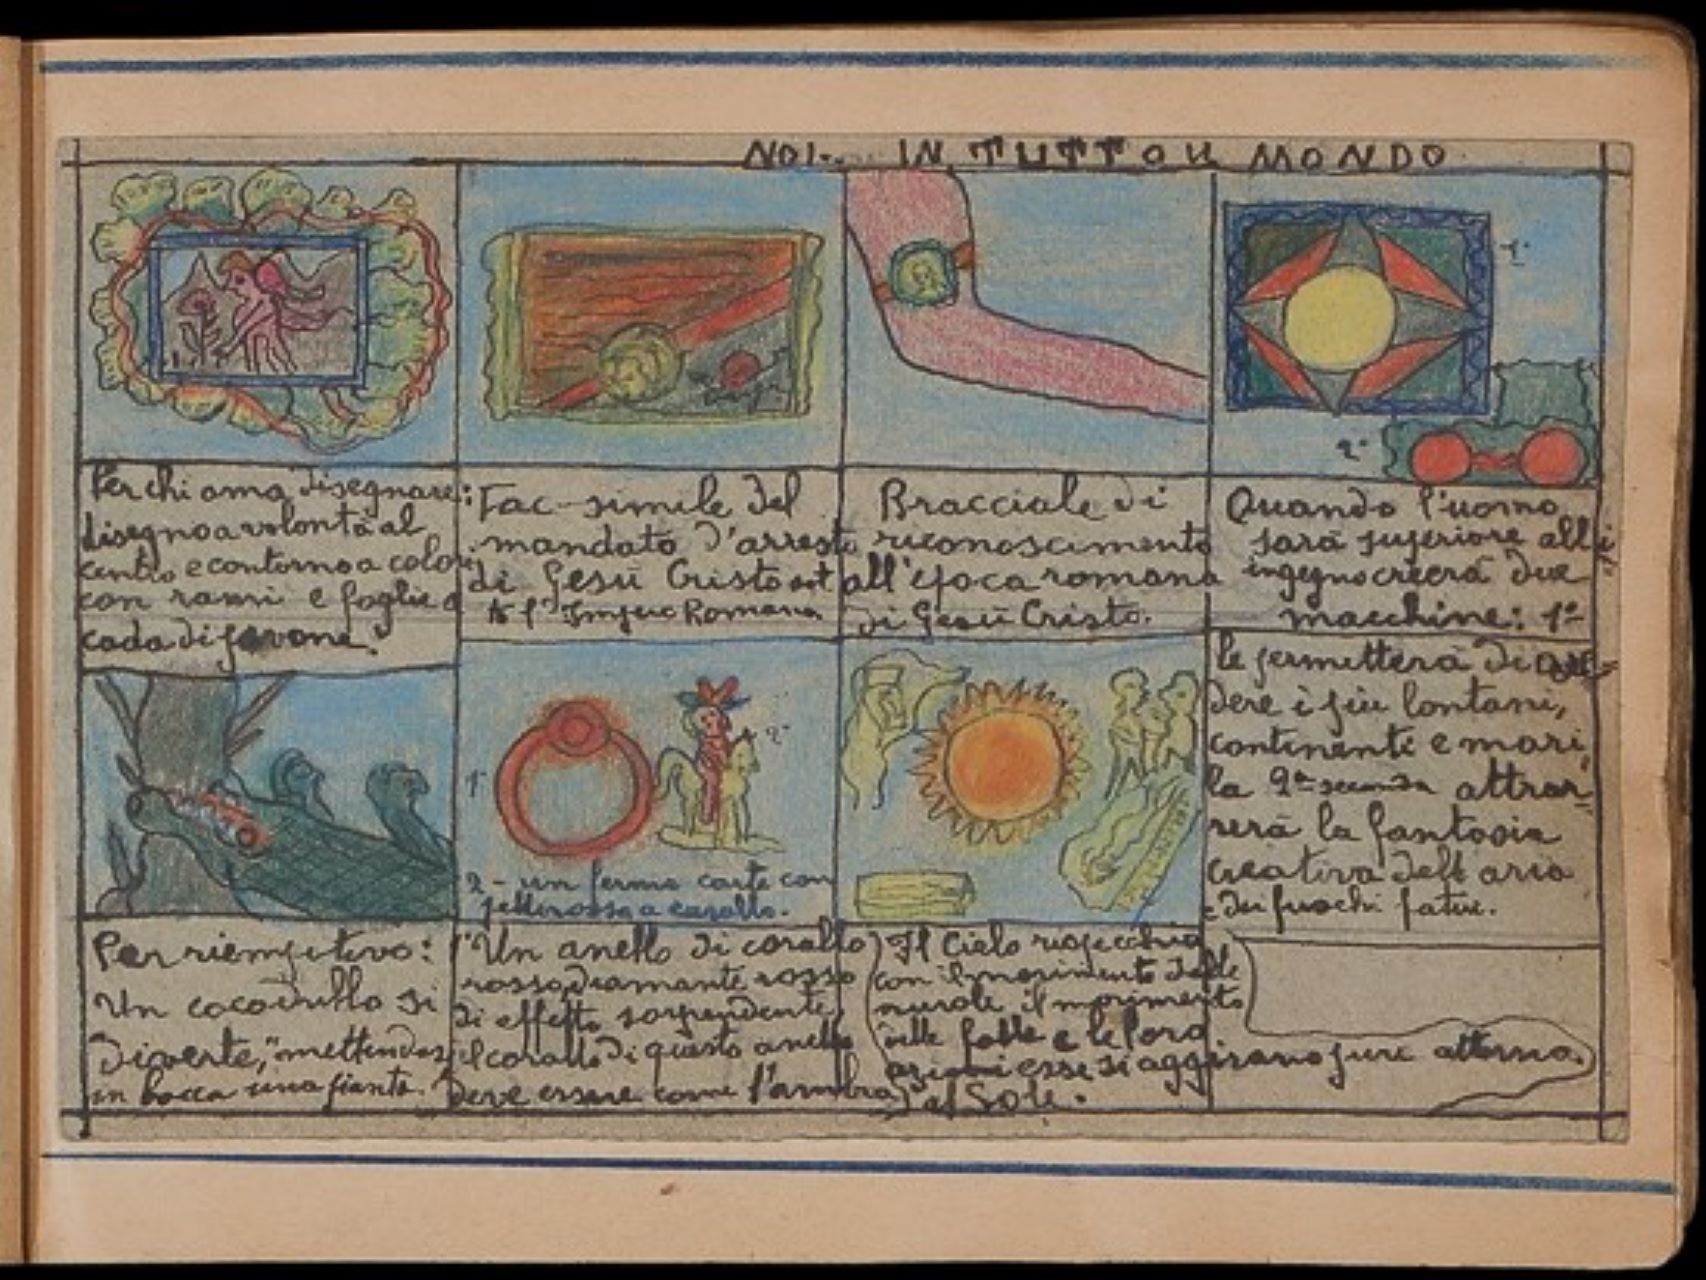 NOI... IN TUTTO IL MONDO
Per chi ama disegnare:
disegno a volontà al
centro e contorno a colori
con rami e foglie a
coda di pavone.
Fac-simile del
mandato d'arresto
di Gesù Cristo sot
to l'Impero Romano
Bracciale di
riconoscimento
all'epoca romana
di Gesù Cristo.
1ª
2ª
Quando l'uomo
sarà superiore all'i
ingegno creerà due
macchine: 1ª
le permetterà di
dere i più lontani,
continenti e mari
la 2ª seconda attrar-
rerà la fantasia
creativa dell'aria
e dei fuochi fatui.
Per riempitivo:
Un cocodrillo si
diverte, "mettendosi
in bocca una pianta."
1ª
2ª
2 - un ferma carte con
pellirossa a cavallo.
1ª Un anello di corallo
rosso, diamante rosso
di effetto sorprendente,
il corallo di questo anello
deve essere come l'ambra
Il Cielo rispecchia
con il movimento delle
nuvole il movimento
delle folle e le loro
azioni esse si aggirano pure attorno
al Sole.